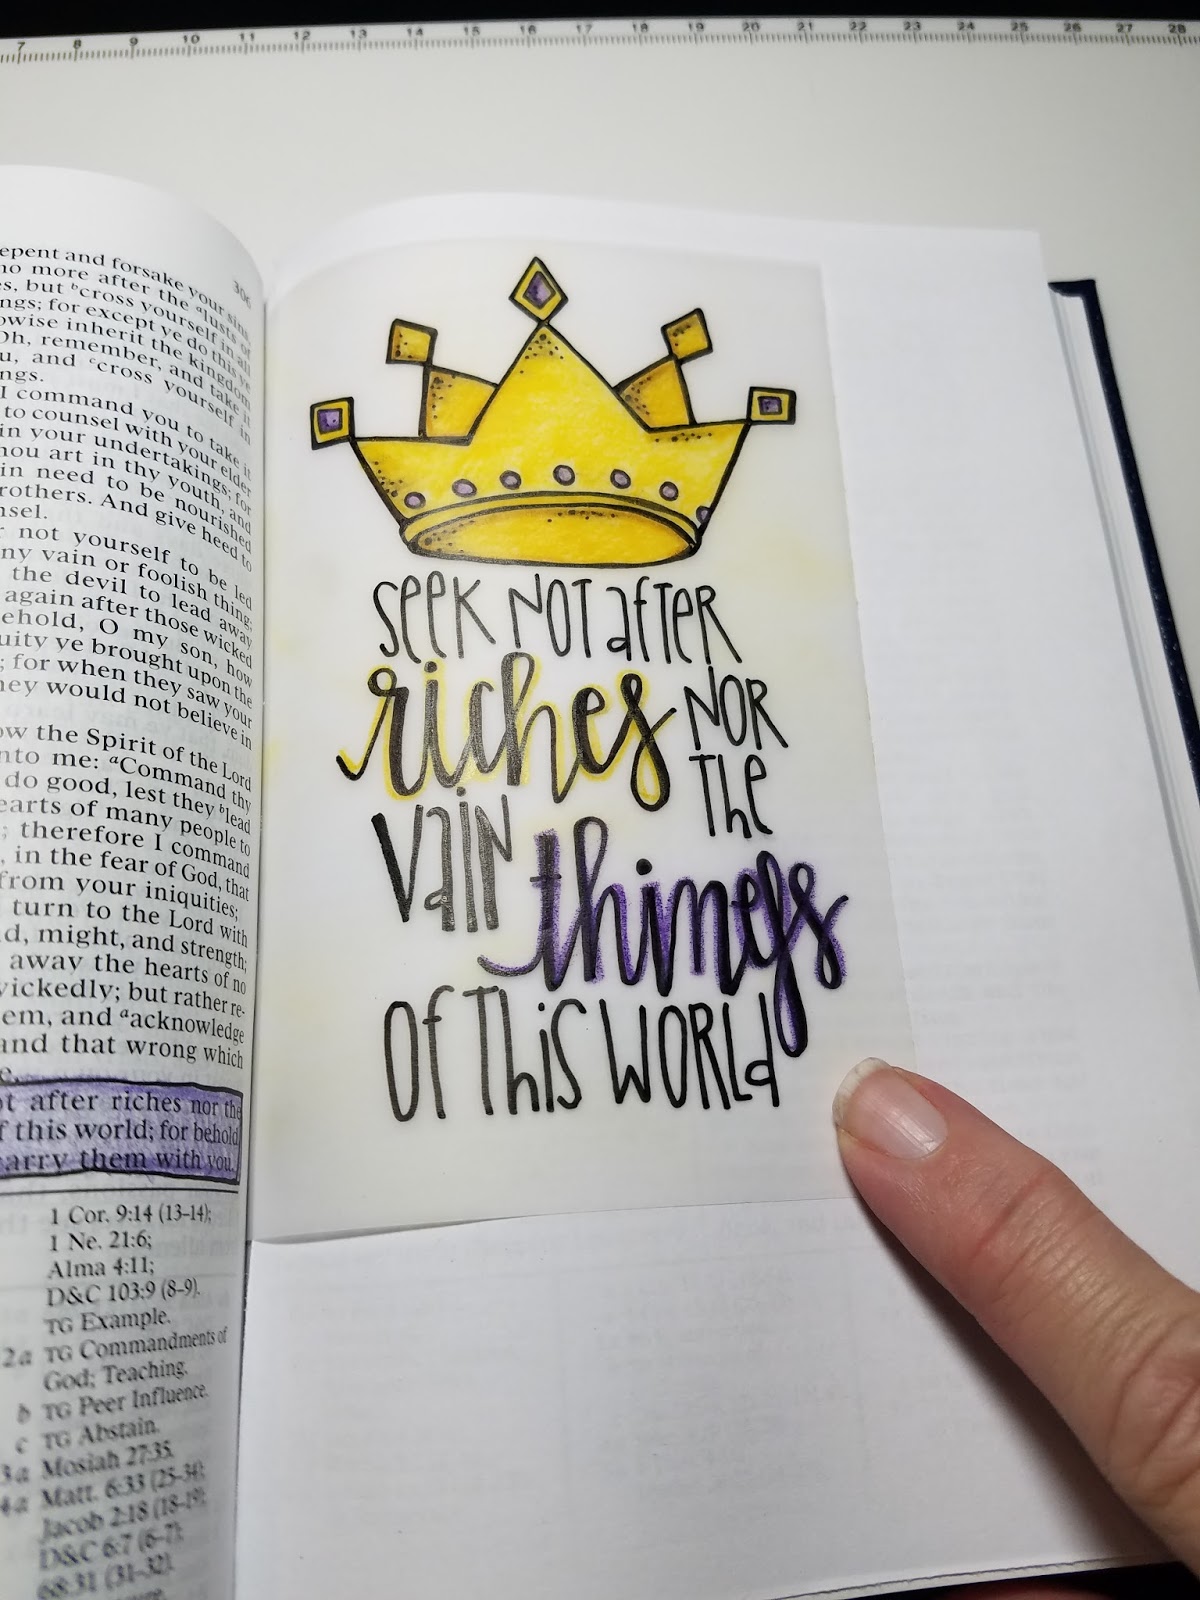 7 8 9 10 11 12 13 14 15 16 17 18 19 20 21 22 23 24 25 26 27 28
306
epent and forsake your sins
no more after the ᵃlusts of
es, but ᵇcross yourself in all
ngs; for except ye do this ye
owise inherit the kingdom
Oh, remember, and take it
u, and ᶜcross yourself in
ngs.
I command you to take it
to counsel with your elder
in your undertakings; for
hou art in thy youth, and
in need to be nourished
rothers. And give heed to
nsel.
r not yourself to be led
ny vain or foolish thing;
the devil to lead away
again after those wicked
ehold, O my son, how
uity ye brought upon the
; for when they saw your
hey would not believe in
ow the Spirit of the Lord
nto me: ᵃCommand thy
do good, lest they ᵇlead
earts of many people to
; therefore I command
, in the fear of God, that
from your iniquities;
turn to the Lord with
nd, might, and strength;
away the hearts of no
vickedly; but rather re-
em, and ᵃacknowledge
and that wrong which
e.
ot after riches nor the
f this world; for behold
arry them with you.
1 Cor. 9:14 (13–14);
1 Ne. 21:6;
Alma 4:11;
D&C 103:9 (8–9).
TG Example.
2a TG Commandments of
God; Teaching.
b TG Peer Influence.
c TG Abstain.
3a Mosiah 27:35.
4a Matt. 6:33 (25–34);
Jacob 2:18 (18–19);
D&C 6:7 (6–7);
68:31 (31–32).
Seek not after
riches nor
the
vain things
of this world